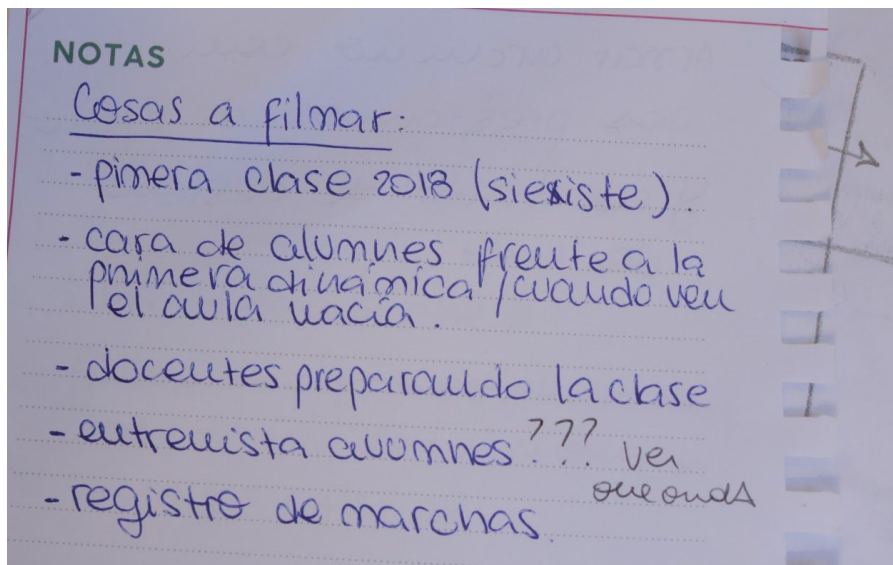 NOTAS
Cosas a filmar:
- pimera clase 2018 (si existe).
- cara de alumnes frente a la
primera dinámica / cuando ven
el aula vacía.
- docentes preparando la clase
- entrevista alumnes??? ver
que onda
- registro de marchas.